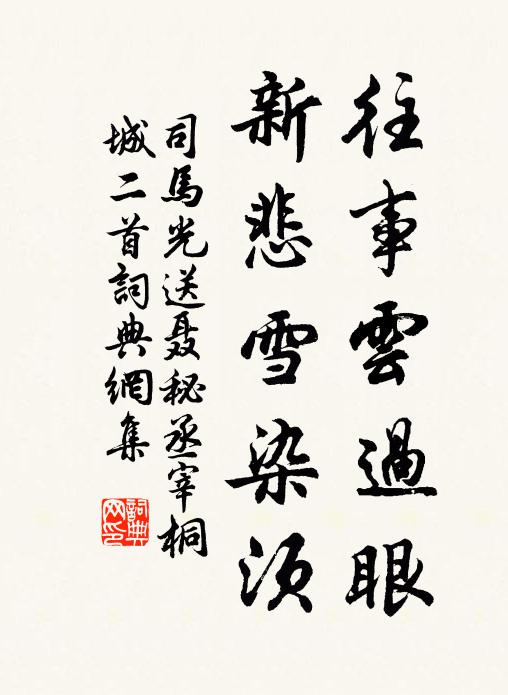 往事雲過眼
新悲雪染須
司馬光送聂秘丞宰桐
城二首詞典網集
詞典
网印